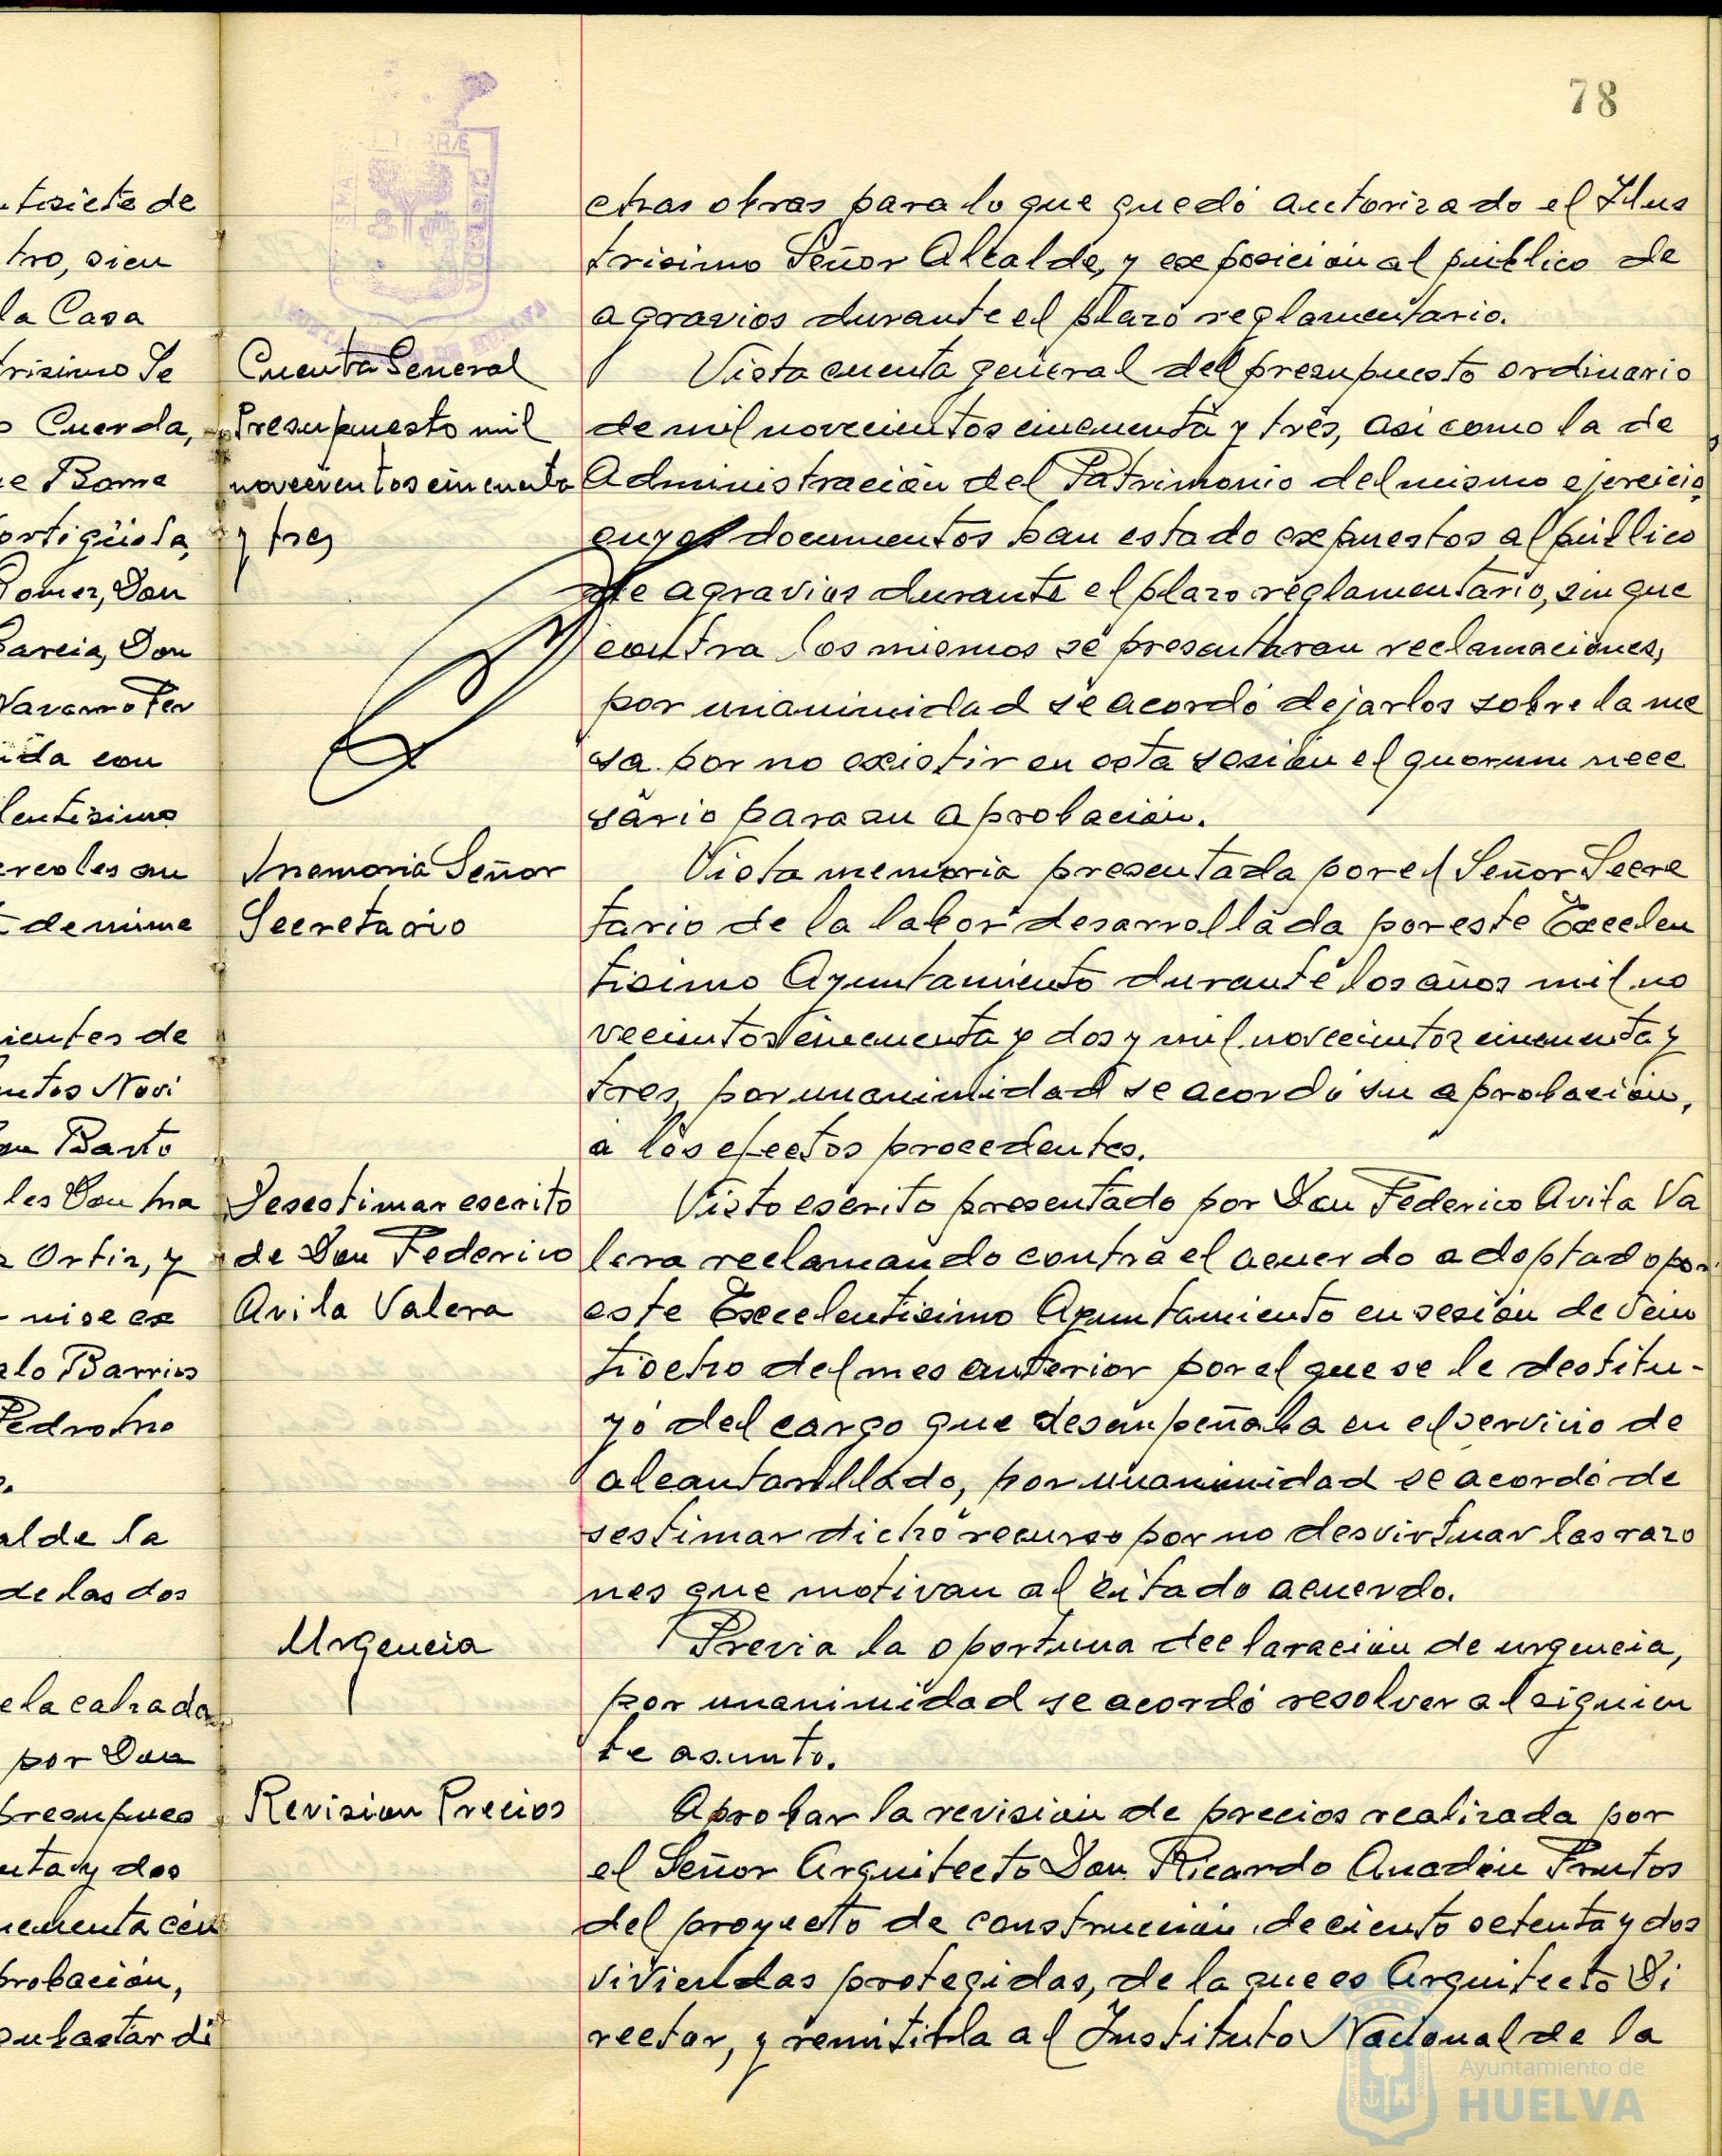 78
tisiete de
tro, sien
la Casa
trisimo Se
o Cuerda,
ue Rome
ortigüela,
Gomez, Don
Garcia, Don
Navarro Fer
ida con
lentisimo
ercoles an
t de nime
ientes de
untos Novi
on Barto
les Don Ma
z Ortiz, y
ni se ex
alo Barrios
Pedro Mo
o.
al de la
de las dos
e la calzada
por Don
presupues
enta y dos
ncuenta cén
probación,
subastar di
Cuenta General
Presupuesto mil
novecientos cincuenta
y tres
Memoria Señor
Secretario
Desestimar escrito
de Don Federico
Avila Valera
Urgencia
Revision Precios
chas obras para lo que quedó autorizado el Ilus
trisimo Señor Alcalde, y exposición al público de
agravios durante el plazo reglamentario.
Vista cuenta general del presupuesto ordinario
de mil novecientos cincuenta y tres, asi como la de
Administración del Patrimonio del mismo ejercicio,
cuyos documentos han estado expuestos al público
de agravios durante el plazo reglamentario, sin que
contra los mismos se presentaran reclamaciones,
por unanimidad se acordó dejarlos sobre la me
sa por no existir en esta sesión el quorum nece
sario para su aprobación.
Vista memoria presentada por el Señor Secre
tario de la labor desarrollada por este Excelen
tisimo Ayuntamiento durante los años mil no
vecientos cincuenta y dos y mil novecientos cincuenta y
tres, por unanimidad se acordó su aprobación,
a los efectos procedentes.
Visto escrito presentado por Don Federico Avila Va
lera reclamando contra el acuerdo adoptado por
este Excelentisimo Ayuntamiento en sesión de vein
tiocho del mes anterior por el que se le destitu-
yó del cargo que desempeñaba en el servicio de
alcantarillado, por unanimidad se acordó de
sestimar dicho recurso por no desvirtuar las razo
nes que motivan al citado acuerdo.
Previa la oportuna declaración de urgencia,
por unanimidad se acordó resolver al siguien
te asunto.
Aprobar la revisión de precios realizada por
el Señor Arquitecto Don Ricardo Anadón Frutos
del proyecto de construcción de ciento setenta y dos
viviendas protegidas, de la que es Arquitecto Di
rector, y remitirla al Instituto Nacional de la
Ayuntamiento de
HUELVA